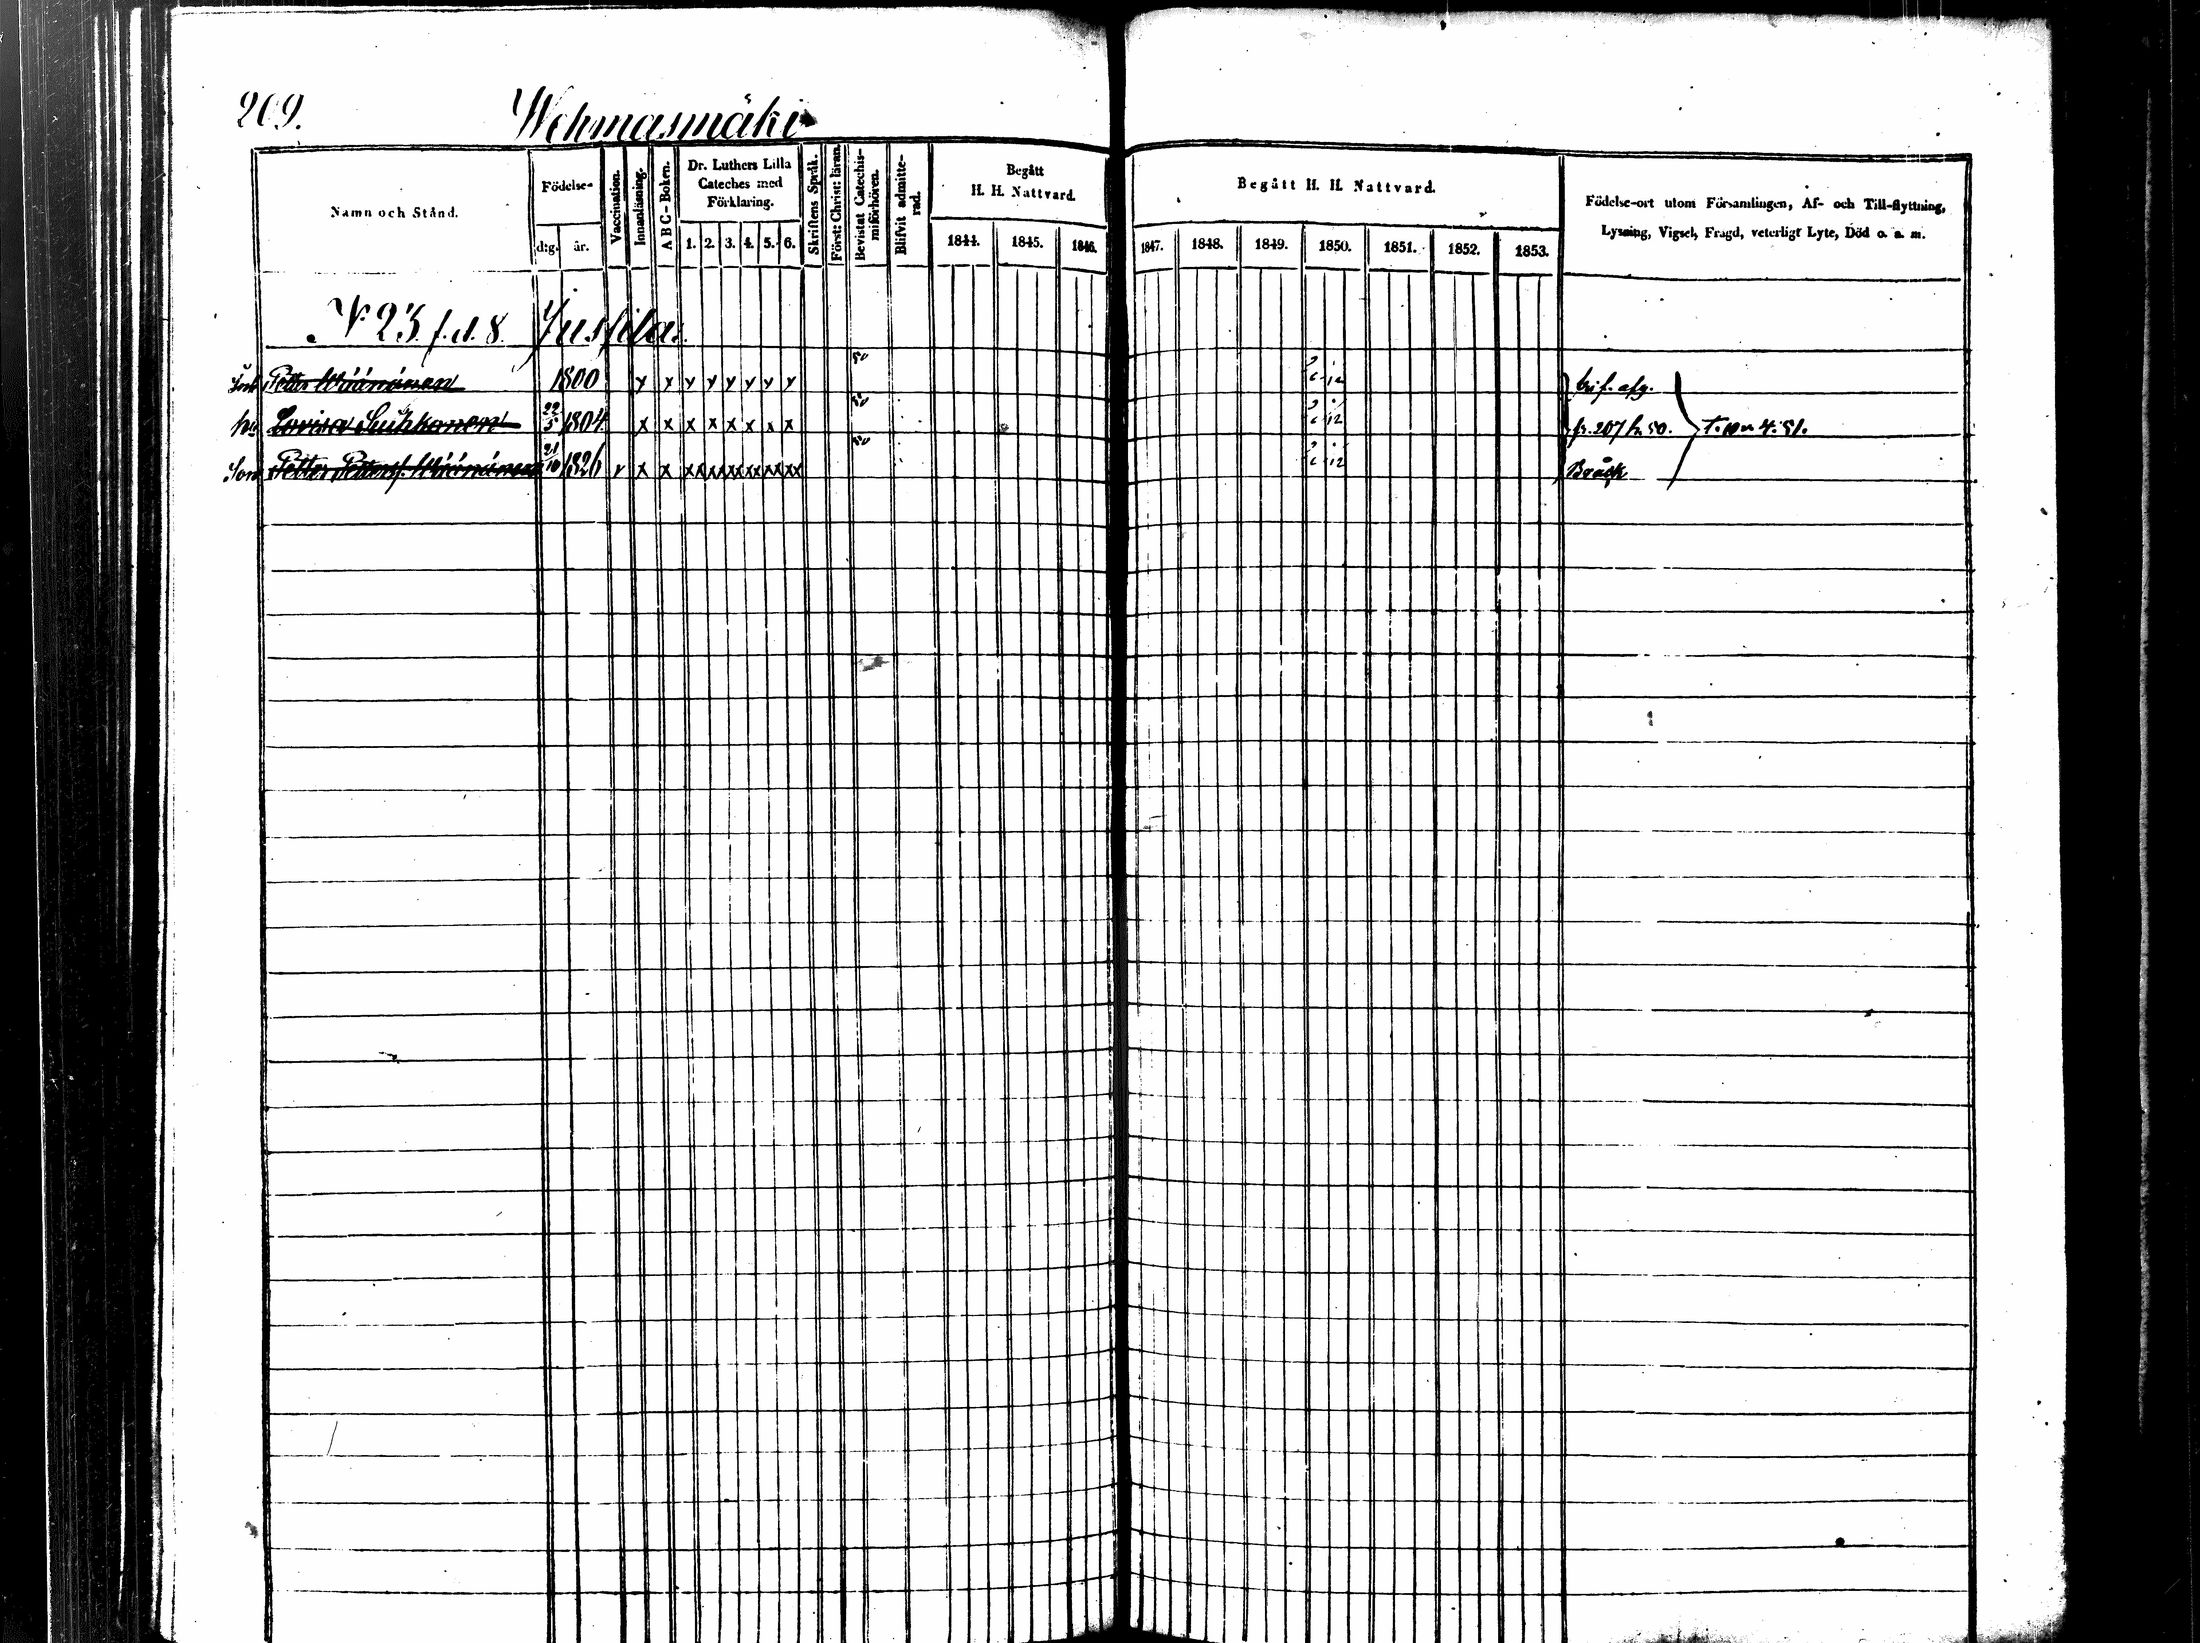 209.
Wehmasmäki
Namn och Stånd.
Födelse-
d:g.
år.
Vaccination.
Innanläsning.
A B C-Boken.
Dr. Luthers Lilla
Cateches med
Förklaring.
1. 2. 3. 4. 5. 6.
Skriftens Språk.
Först: Christ: läran.
Bevistat Catechis-
miförhören.
Blifvit admitte-
rad.
Begått
H. H. Nattvard.
1844. 1845. 1846.
Begått H. H. Nattvard.
1847. 1848. 1849. 1850. 1851. 1852. 1853.
Födelse-ort utom Församlingen, Af- och Till-flyttning,
Lysning, Vigsel, Frägd, veterligt Lyte, Död o. a. m.
N 23 f. d. 8. Jussila.
Petter Wäänänen 1800 x x x x x x x x 50
hu Lovisa Suhkonen 22/5 1804 x x x x x x x x 50 fr. 207 50.
Son Petter Petterss. Wäänänen 21/10 1826 v x x xx xx xx xx xx xx 50 Bråck